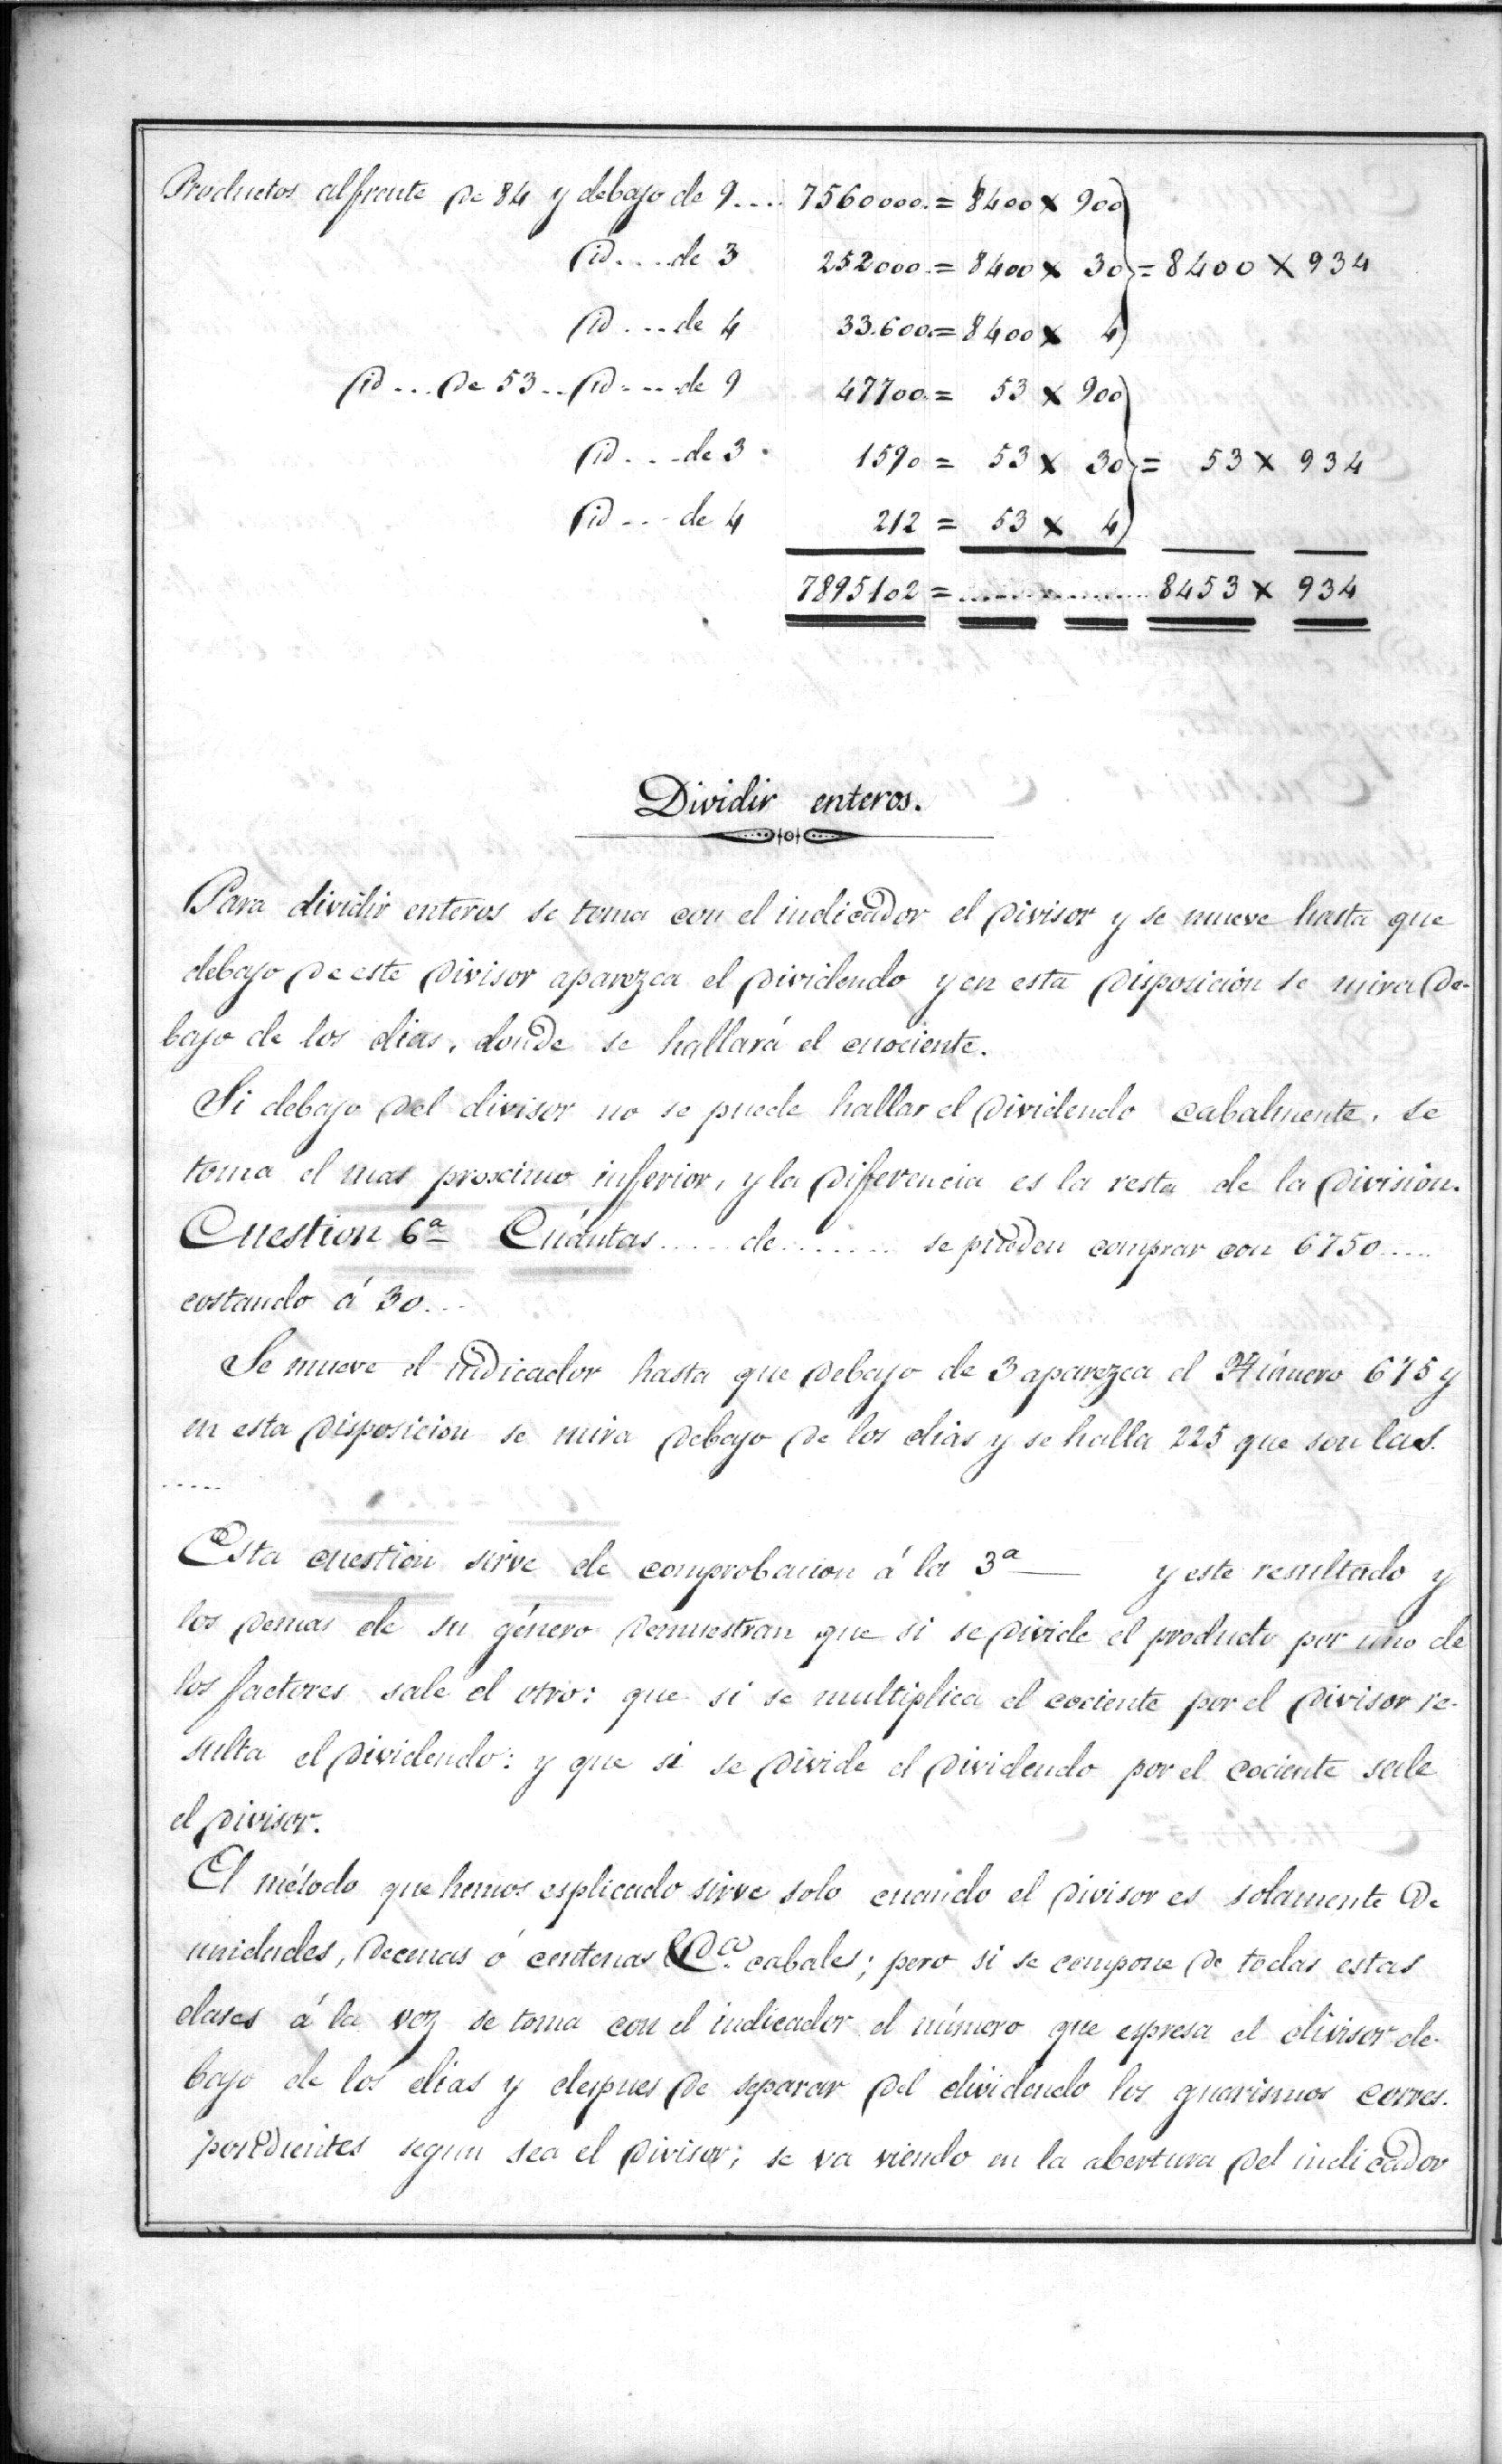 Productos al frente de 84 y debajo de 9.... 7560000. = 8400 x 900
id....de 3 252000. = 8400 x 30 = 8400 x 934
id....de 4 33.600. = 8400 x 4
id...de 53..id....de 9 47700. = 53 x 900
id....de 3 1590 = 53 x 30 = 53 x 934
id....de 4 212 = 53 x 4
7895102 = ......x......... 8453 x 934
Dividir enteros.
Para dividir enteros se toma con el indicador el divisor y se mueve hasta que
debajo de este divisor aparezca el dividendo y en esta disposicion se mira de-
bajo de los dias, donde se hallará el cuociente.
Si debajo del divisor no se puede hallar el dividendo cabalmente, se
toma el mas proximo inferior, y la diferencia es la resta de la division.
Cuestion 6ª Cuántas..... de........ se pueden comprar con 6750.....
costando á 30...
Se mueve el indicador hasta que debajo de 3 aparezca el Número 675 y
en esta disposicion se mira debajo de los dias y se halla 225 que son las.
.....
Esta cuestion sirve de comprobacion á la 3ª — y este resultado y
los demas de su género demuestran que si se divide el producto por uno de
los factores sale el otro: que si se multiplica el cociente por el divisor re-
sulta el dividendo: y que si se divide el dividendo por el cociente sale
el divisor.
El método que hemos esplicado sirve solo cuando el divisor es solamente de
unidades, decenas ó centenas &ª cabales; pero si se compone de todas estas
clases á la vez se toma con el indicador el número que espresa el divisor de-
bajo de los dias y despues de separar del dividendo los guarismos corres-
pondientes segun sea el divisor; se va viendo en la abertura del indicador